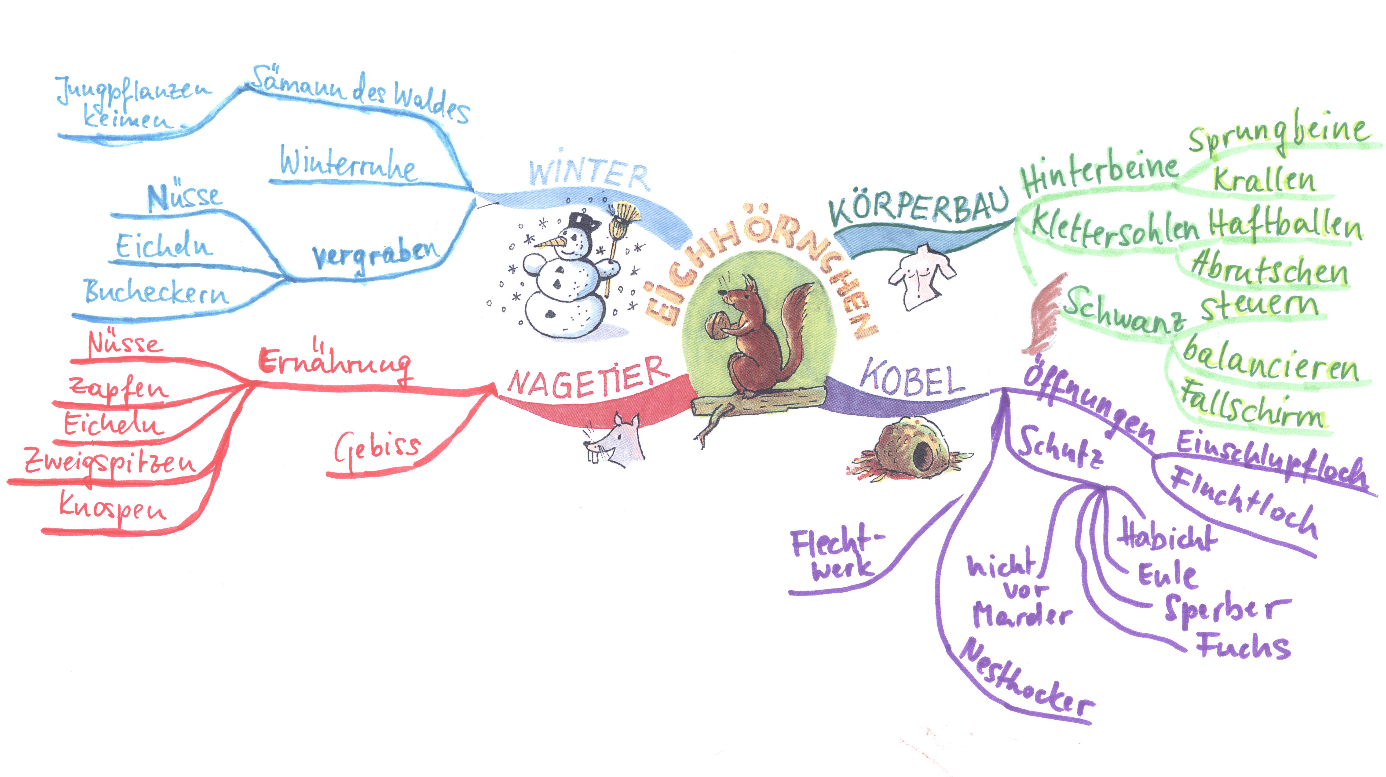 EICHHÖRNCHEN
WINTER
Sämann des Waldes
Jungpflanzen
keimen
Winterruhe
vergraben
Nüsse
Eicheln
Bucheckern
NAGETIER
Ernährung
Nüsse
Zapfen
Eicheln
Zweigspitzen
Knospen
Gebiss
KÖRPERBAU
Hinterbeine
Sprungbeine
Krallen
Klettersohlen
Haftballen
Abrutschen
Schwanz
steuern
balancieren
Fallschirm
KOBEL
Öffnungen
Einschlupfloch
Fluchtloch
Schutz
Habicht
Eule
Sperber
Fuchs
nicht
vor
Marder
Flecht-
werk
Nesthocker